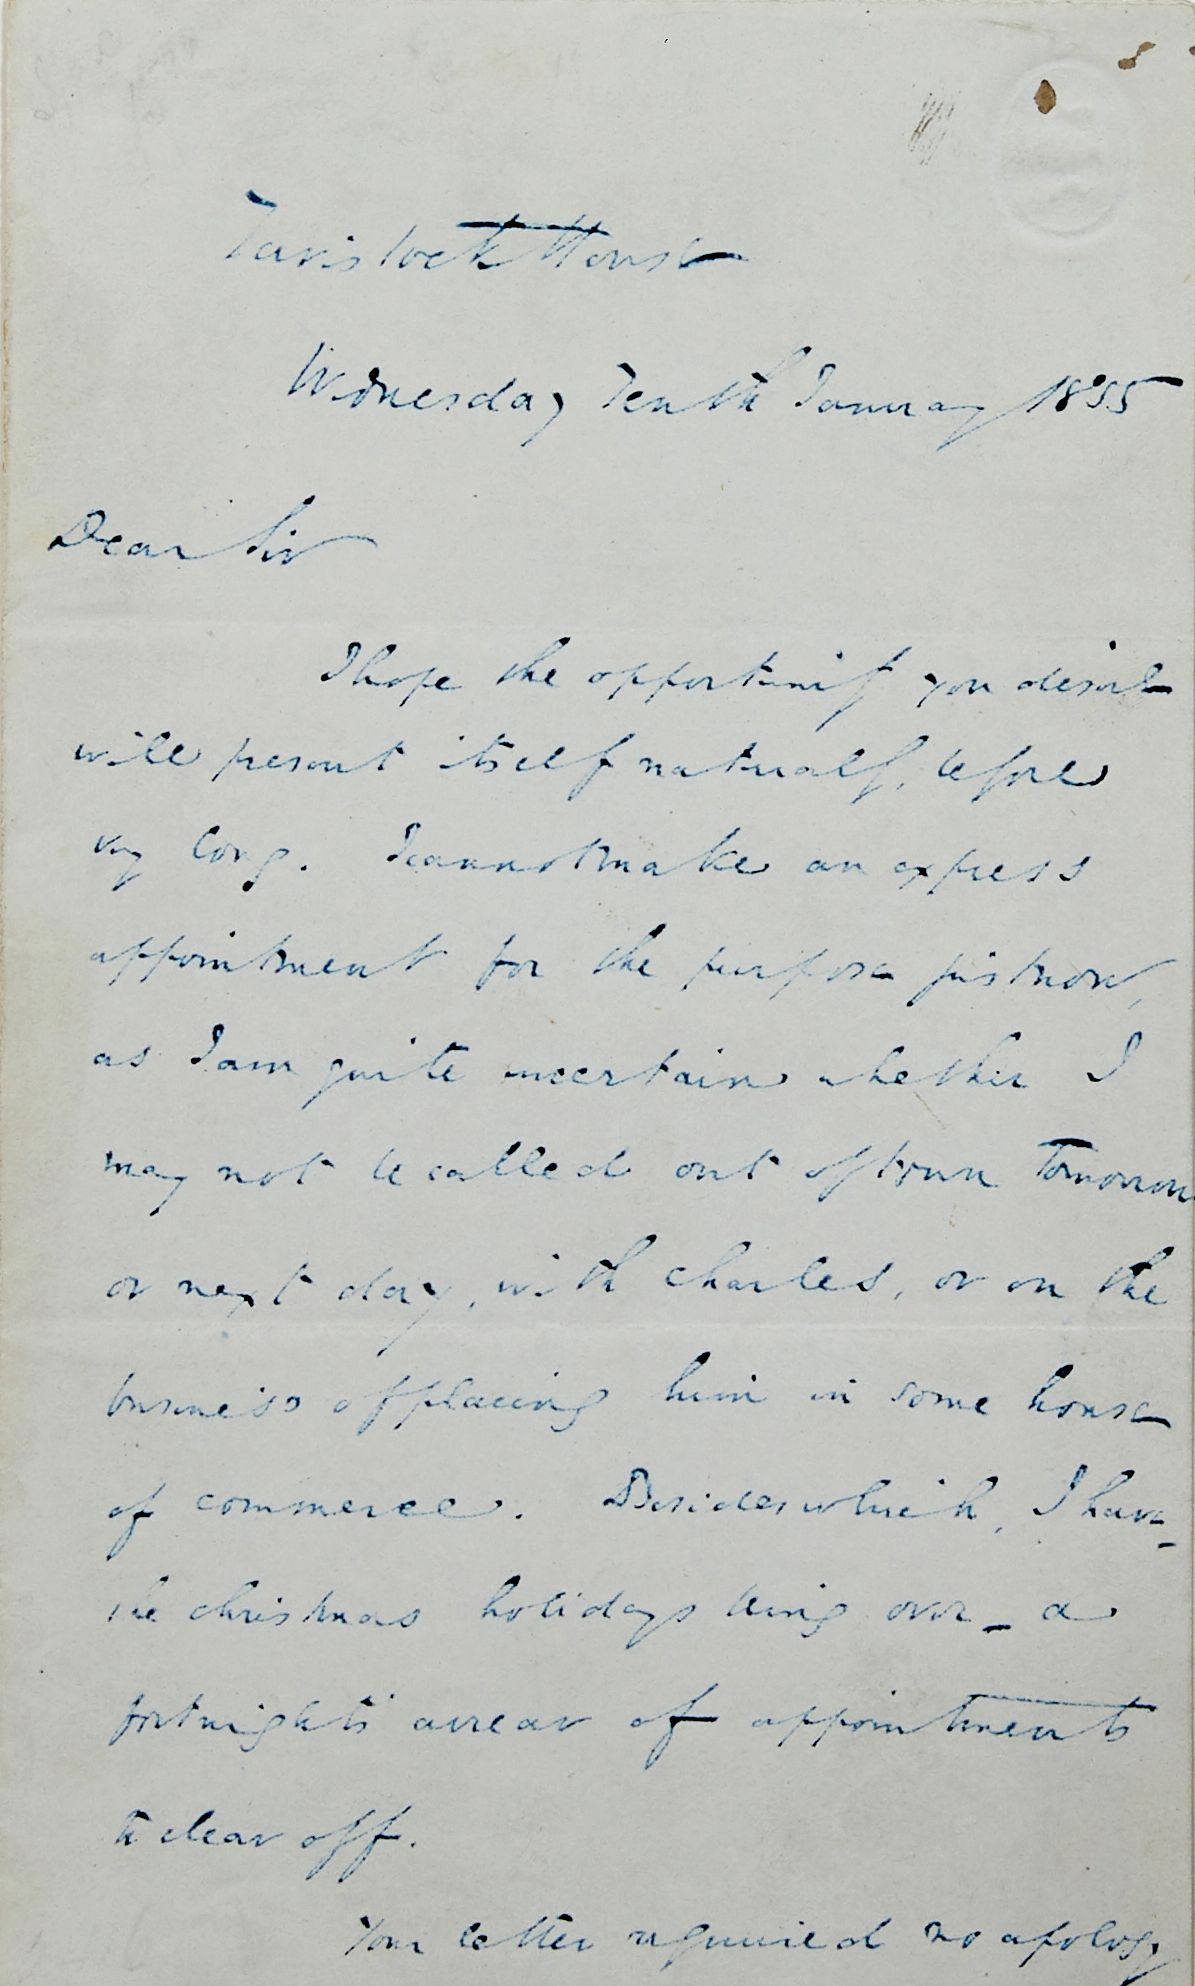 Tavistock House
Wednesday Tenth January 1855
Dear Sir
I hope the opportunity you desire
will present itself naturally, before
very long. I cannot make an express
appointment for the purpose just now,
as I am quite uncertain whether I
may not be called out of town tomorrow
or next day, with Charles, or on the
business of placing him in some house
of commerce. Besides which, I have –
the Christmas holidays being over – a
fortnight's arrear of appointments
to clear off.
Your letter required no apology